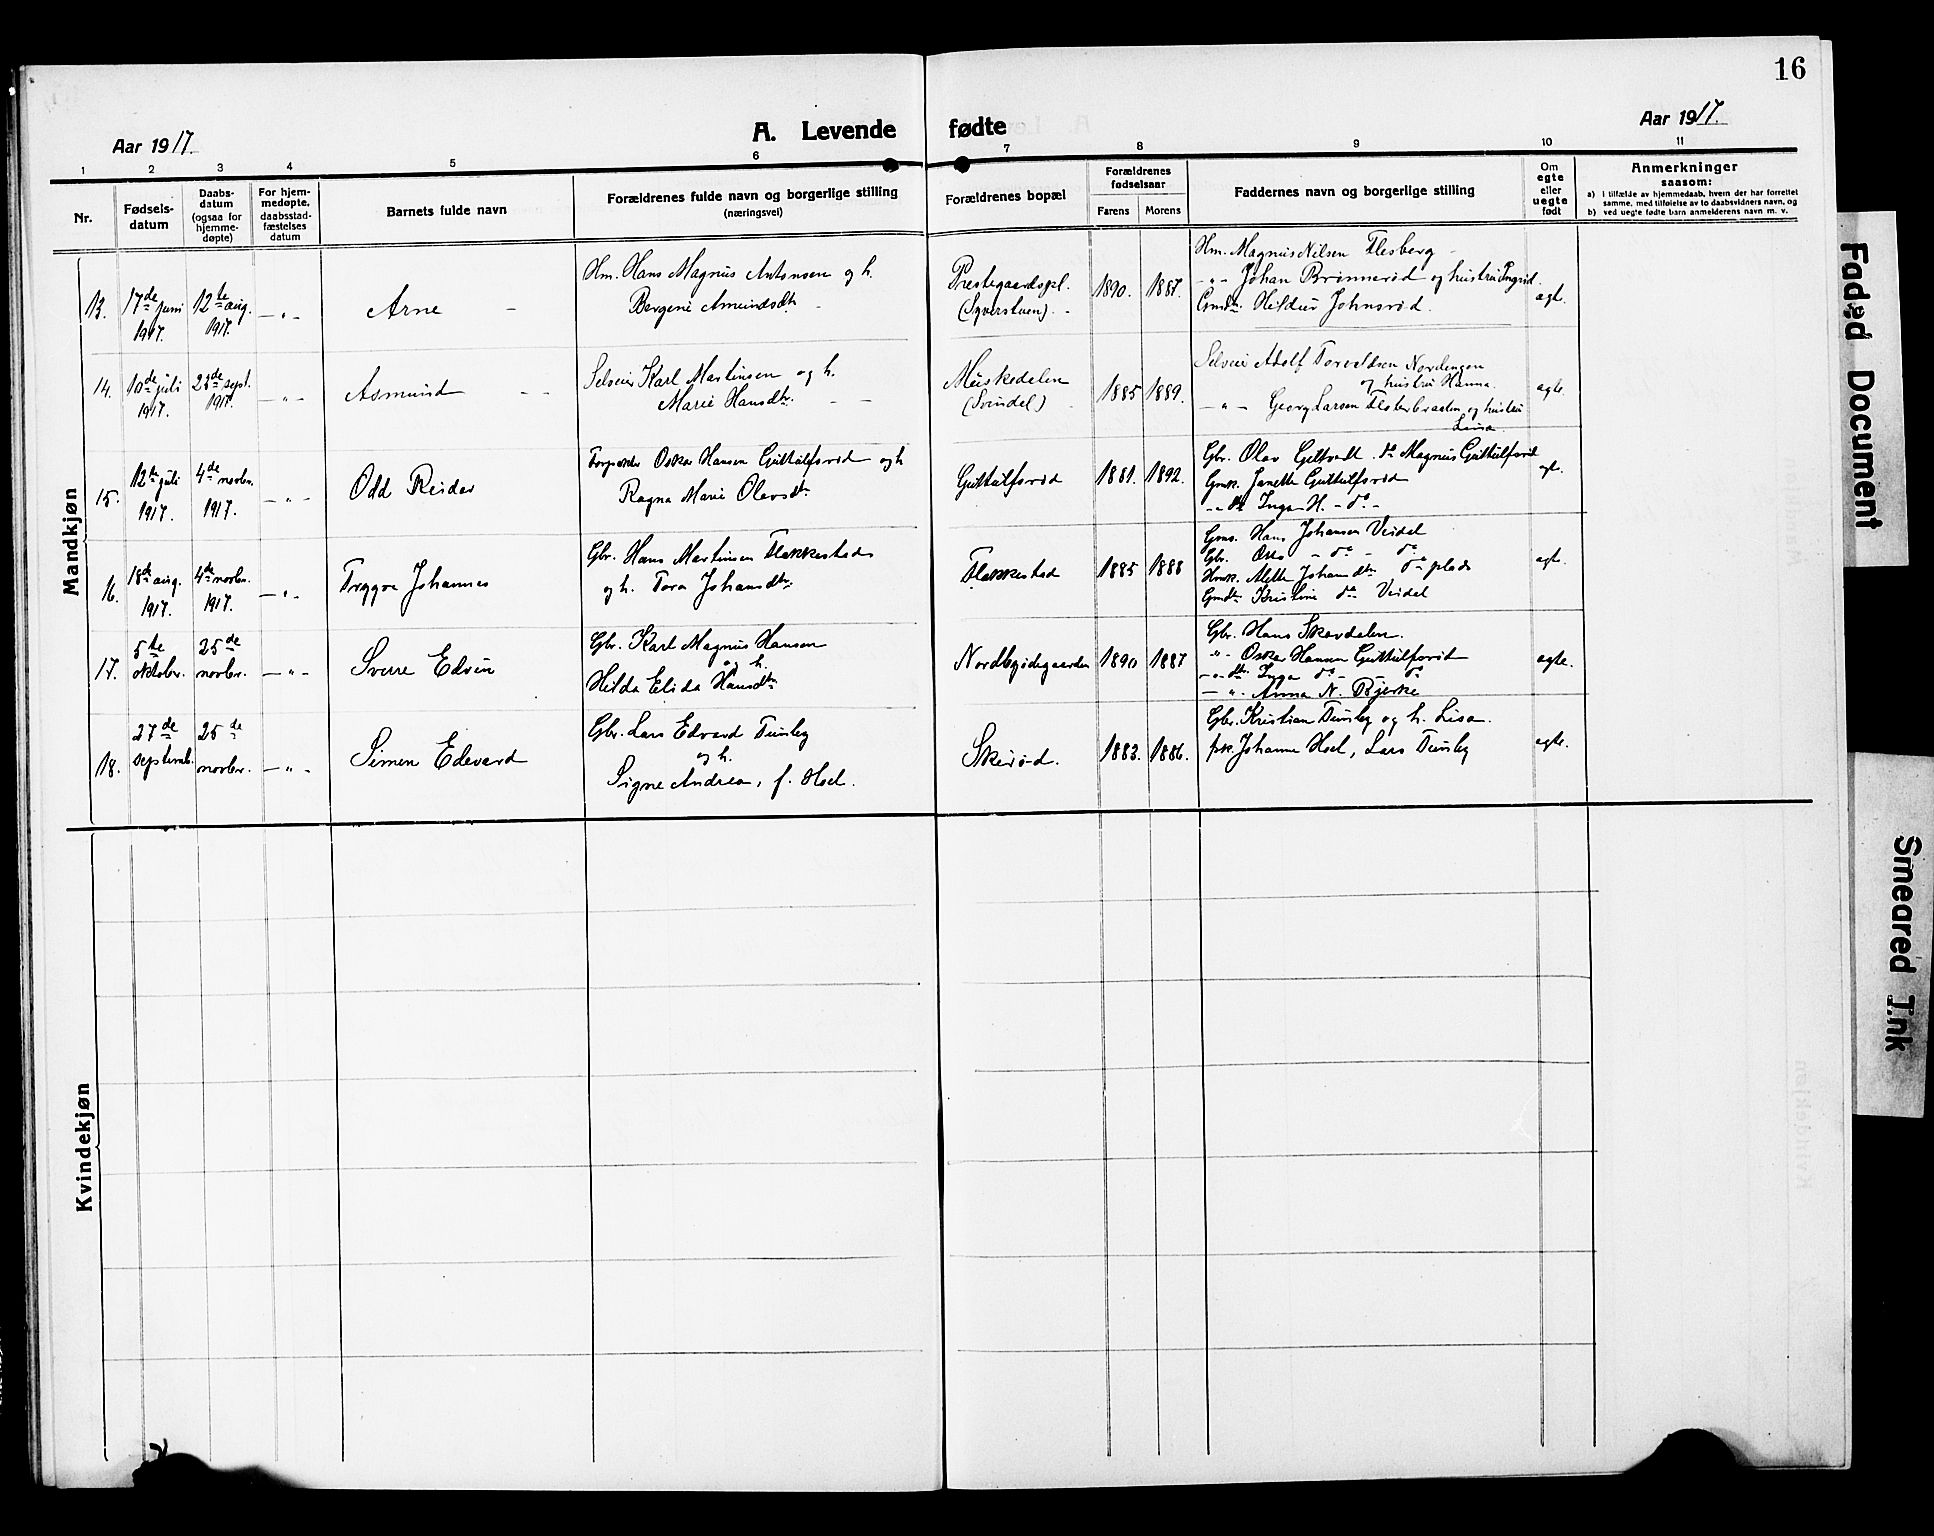 16
Aar 1917.
A. Levende fødte
Aar 1917.
1 2 3 4 5 6 7 8 9 10 11
Nr.
Fødsels-
datum
Daabs-
datum
(ogsaa for
hjemme-
døpte)
For hjem-
medøpte,
daabsstad-
fæstelses
datum
Barnets fulde navn
Forældrenes fulde navn og borgerlige stilling
(næringsvei)
Forældrenes bopæl
Forældrenes
fødselsaar
Farens Morens
Faddernes navn og borgerlige stilling
Om
egte
eller
uegte
født
Anmerkninger
saasom:
a) I tilfælde av hjemmedaab, hvem der har forrettet
samme, med tilføielse av to daabsvidners navn, og
b) ved uegte fødte barn anmelderens navn m. v.
Mandkjøn
13.
17de juni
1917.
12te aug.
1917.
- „ -
Arne -
Hm. Hans Magnus Antonsen og h.
Bergene Amundsdtr. -
Prestegaardspl.
(Syverstuen). -
1890. 1887.
Hm. Magnus Nilsen Flesberg -
- „ - Johan Brønnerød og hustru Ingrid.
Gmdtr. Hildur Johnsrød.
egt.
14.
10de juli
1917.
23de sept.
1917.
- „ -
Asmund - -
Selveier Karl Martinsen og h.
Marie Hansdtr. - -
Muskedalen
(Svindel) -
1885 1889.
Selveier Adolf Torvaldsen Nordengen
og hustru Hanna.
- „ - Georg Larsen og hustru
Lina.
egte.
15.
12te juli
1917.
4de novbr.
1917.
- „ -
Odd Reidar
Oskar Hansen Guttulfsrød og h
Ragna Marie Olavsdtr.
Guttulfsrød
1881. 1892.
Gbr. Olav Geltvedt. do Magnus Guttulfsrød
Gmk. Janette Guttulfsrød
- „ dtr Inga H. - do. -
egt.
16.
18de aug.
1917.
4de novbr.
1917.
- „ -
Trygve Johannes
Gbr. Hans Martinsen Flakkestad
og h. Tora Johansdtr.
Flakkestad
1885 1888
Gms. Hans Johansen Veidal
Gbr. Otto - do - do.
Hmk. Mette Johansdtr. do plads
Gmdtr. Kristine do Veidal
egte.
17.
5te
oktobr.
25de
novbr.
- „ -
Sverre Edvin
Gbr. Karl Magnus Hansen
og h.
Hilda Elida Hansdtr.
Nordbygdegaarden
1890 1887
Gbr. Hans Skavdalen.
- „ - Oskar Hansen Guttulfsrød
- „ - dtr. Inga do - do
- „ - Anna N. Bjerke
egte.
18.
27de
septemb.
25de
novbr.
- „ -
Simen Edevard
Gbr. Lars Edvard Tunby
og h.
Signe Andrea, f. Hoel.
Skeirød.
1883. 1886.
Gbr. Kristian Tunby og h. Lisa.
pk. Johanne Hoel, Lars Tunby
egte.
Kvindekjøn
Faded Document
Smeared Ink